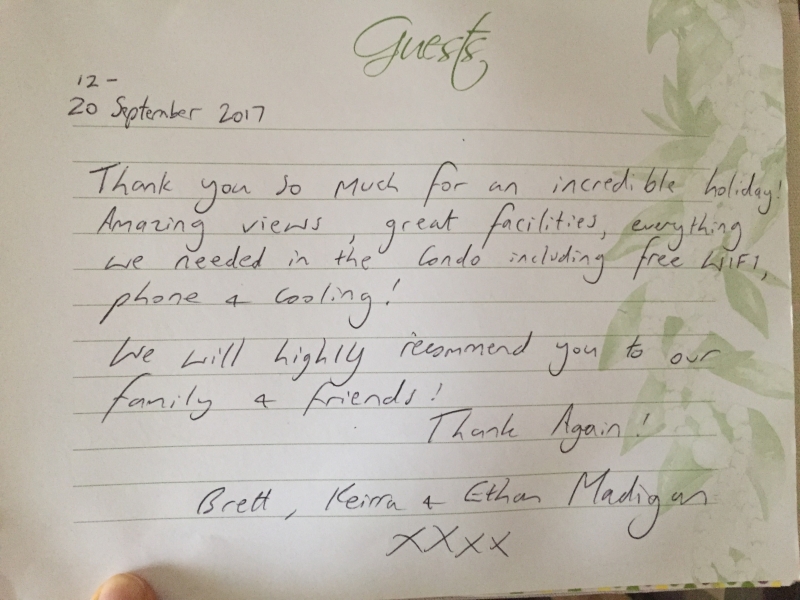 Guests
12 -
20 September 2017
Thank you so much for an incredible holiday!
Amazing views, great facilities, everything
we needed in the Condo including free WIFI,
phone & cooling!
We will highly recommend you to our
family & friends!
Thank Again!
Brett, Keirra & Ethan Madigan
XXXX